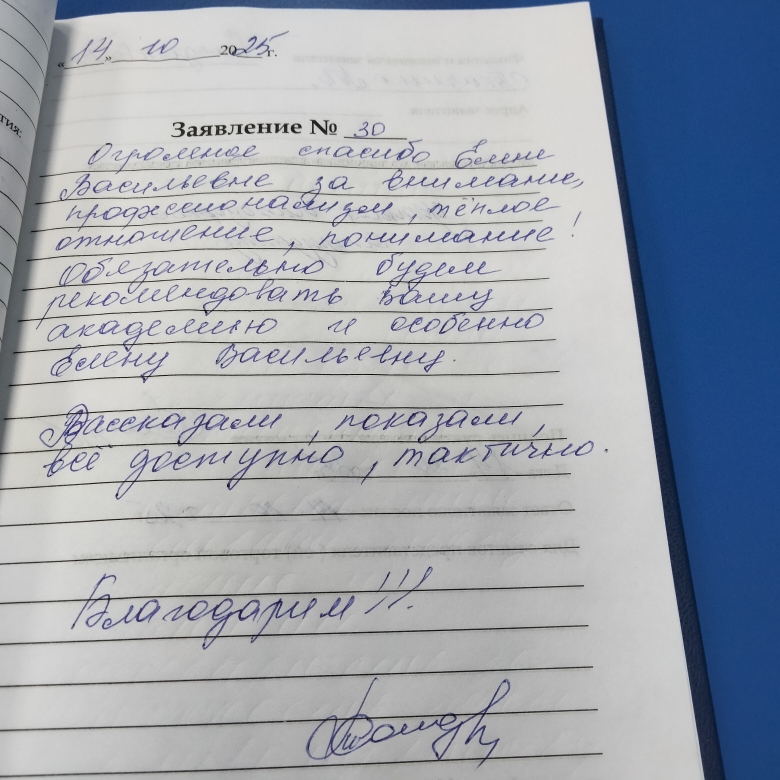 «14» 10 2025 г.
Заявление № 30
Огромное спасибо Елене
Васильевне за внимание,
профессионализм, тёплое
отношение, понимание!
Обязательно будем
рекомендовать вашу
академию и особенно
Елену Васильевну.
Рассказали, показали,
всё доступно, тактично.
Благодарим!!!